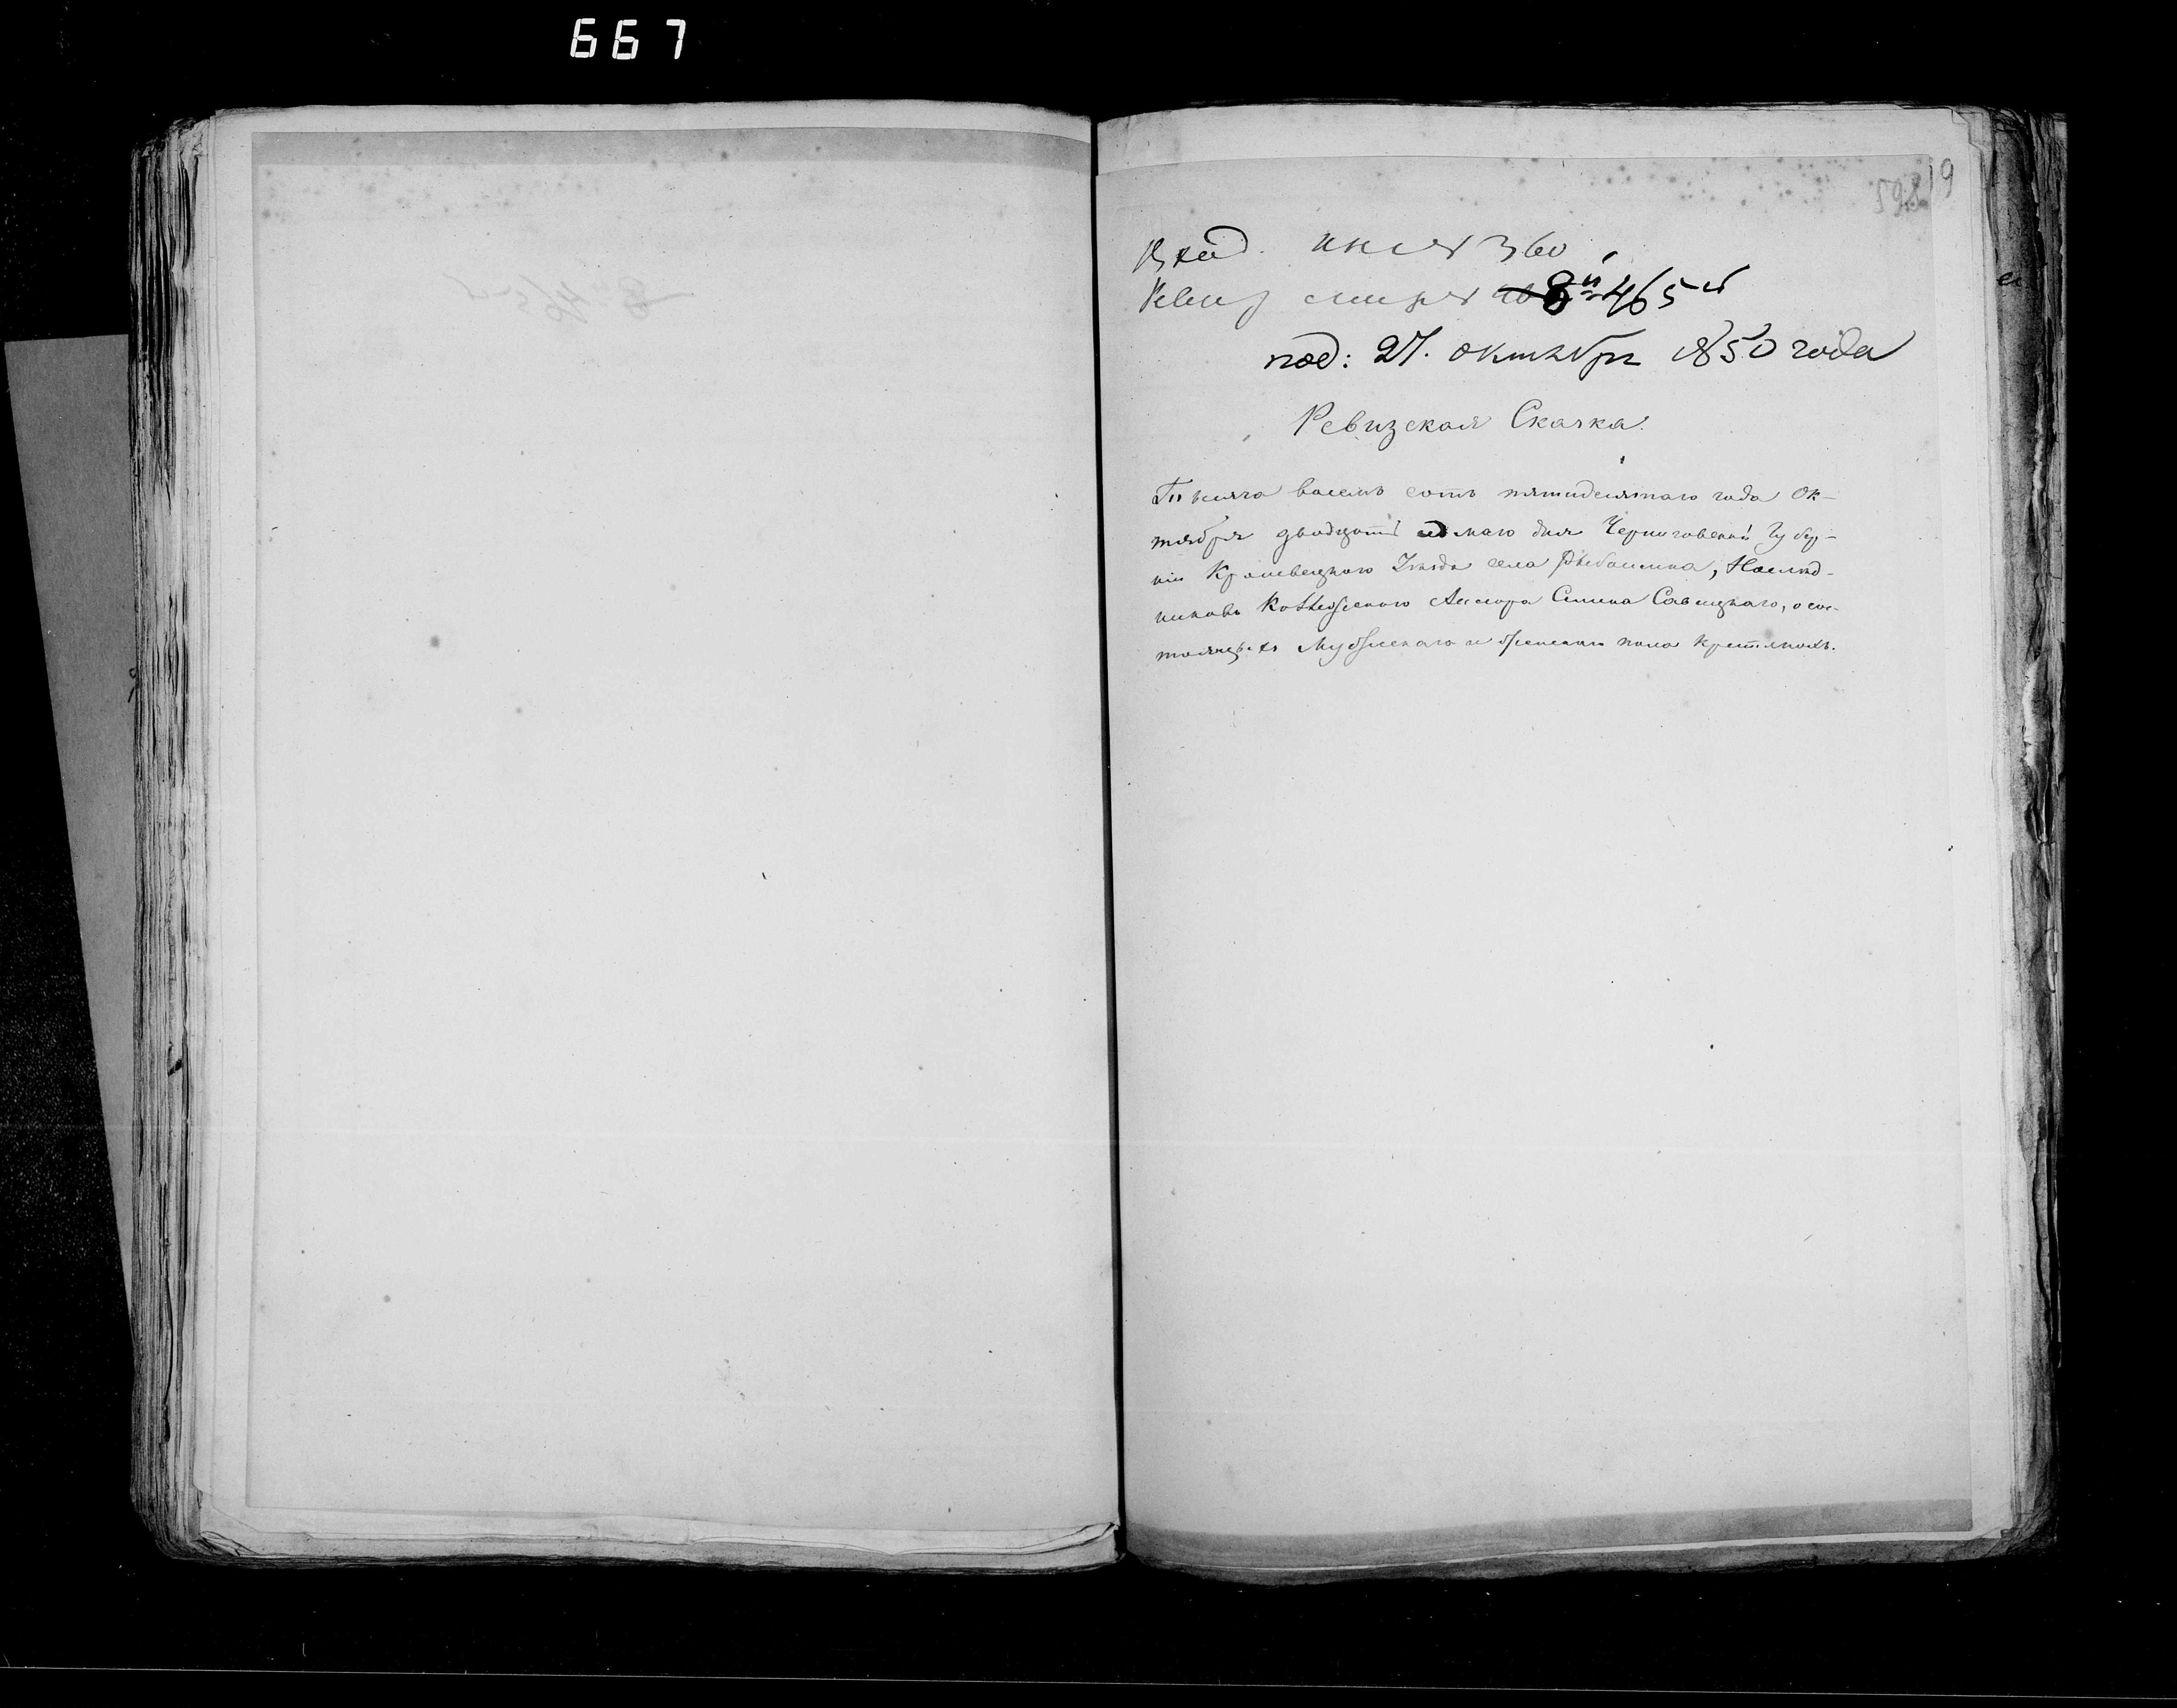 667
598 19
Вход. 360
8й 465й
под: 27. октября 1850 года
Ревизская Сказка.
Тысяча восемь сотъ пятидесятаго года Ок-
тября двадцать седмаго дня Черниговской Губер-
ніи Кролевецкаго Уѣзда села Рыботина, Наслѣд-
никовъ Коллежскаго Асессора Савицкаго, о сос-
тоящихъ Мужескаго и женскаго пола крестьянахъ.